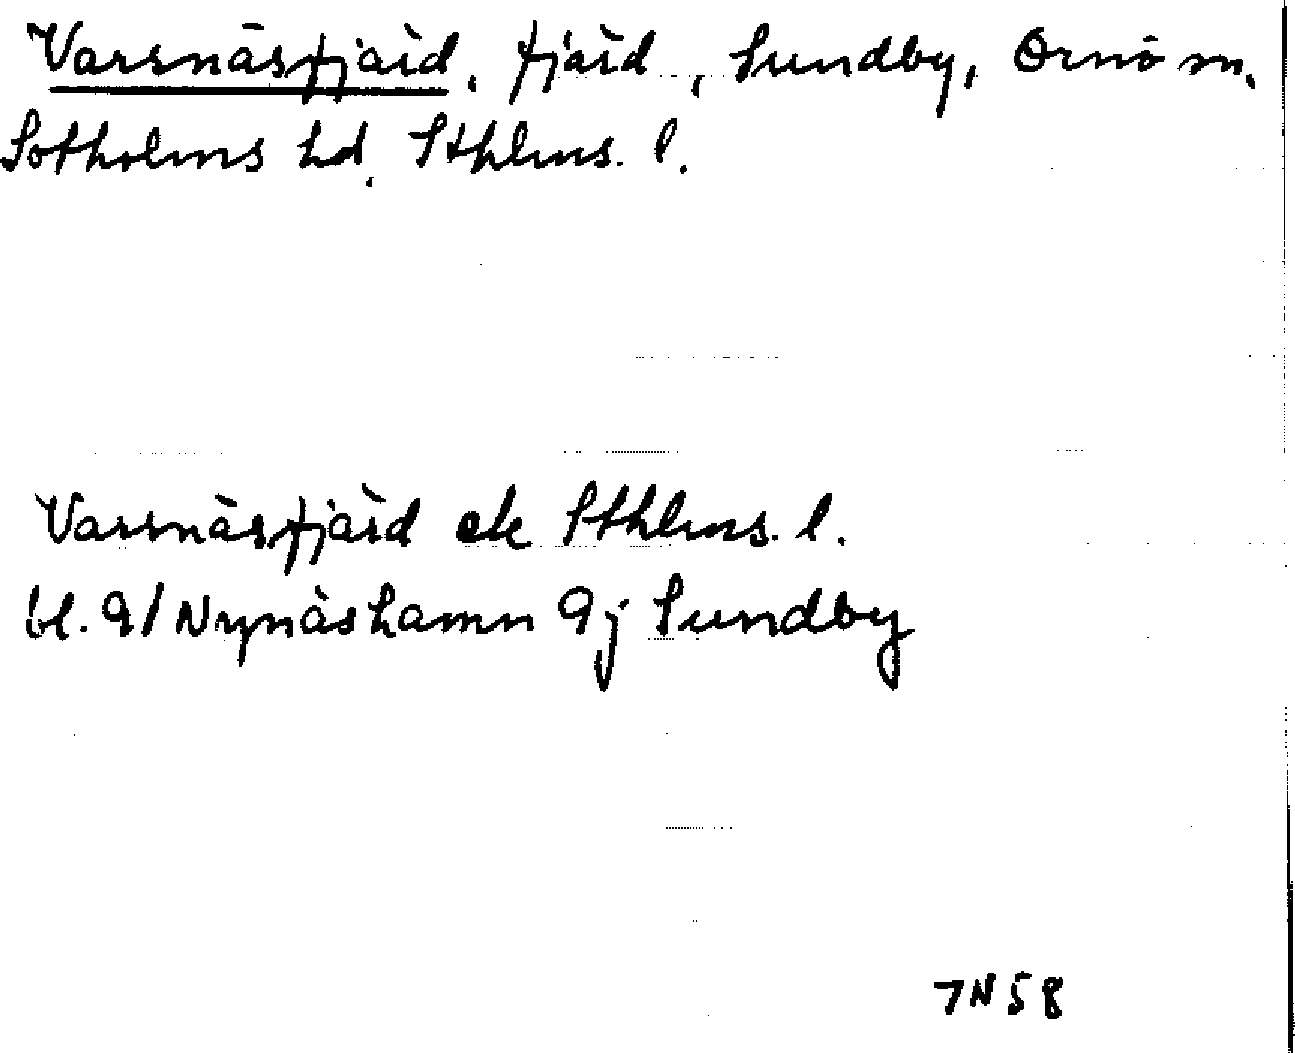 Varsnäsfjärd, fjärd, Sundby, Ornö sn.
Sotholms hd. Sthlms. l.
Varsnäsfjärd ek Sthlms. l.
bl. 91 Nynäshamn 9j Sundby
7N58